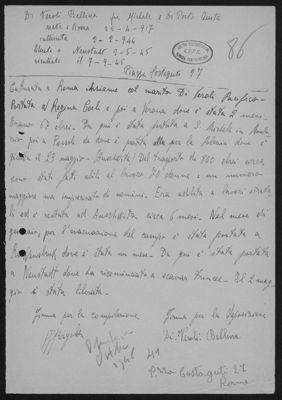 Di Veroli Bellina fu Michele e Di Porto
nata a Roma 25-4-917
catturata 2-2-944
liberata a Neustadt 2-5-45
rientrata il 7-9-45
Piazza Costaguti 27
86
Catturata a Roma insieme al marito Di Veroli Pacifico.
Portata a Regina Coeli e poi a Verona dove è stata 2 mesi.
Erano 57 ebrei. Da qui è stata portata a
poi a Fossoli da dove è partita per la Polonia dove è
giunta il 23 maggio (Auschwitz) Del trasporto di 980 ebrei circa
sono stati fatti abili al lavoro 70 donne e un numero
maggiore ma imprecisato di uomini. Era adibita a lavori
ed è restata ad Auschwitz circa 6 mesi. Nel mese di
gennaio, per l'evacuazione del campo è stata portata a
Ravensbruck dove è stata un mese. Da qui è stata portata
a Neustadt dove ha ricominciato a scavar trincee. Il 2 mag-
gio è stata liberata.
Firma per la compilazione
Firma per la deposizione
Di Veroli Bellina
P.zza Costaguti 27
Roma